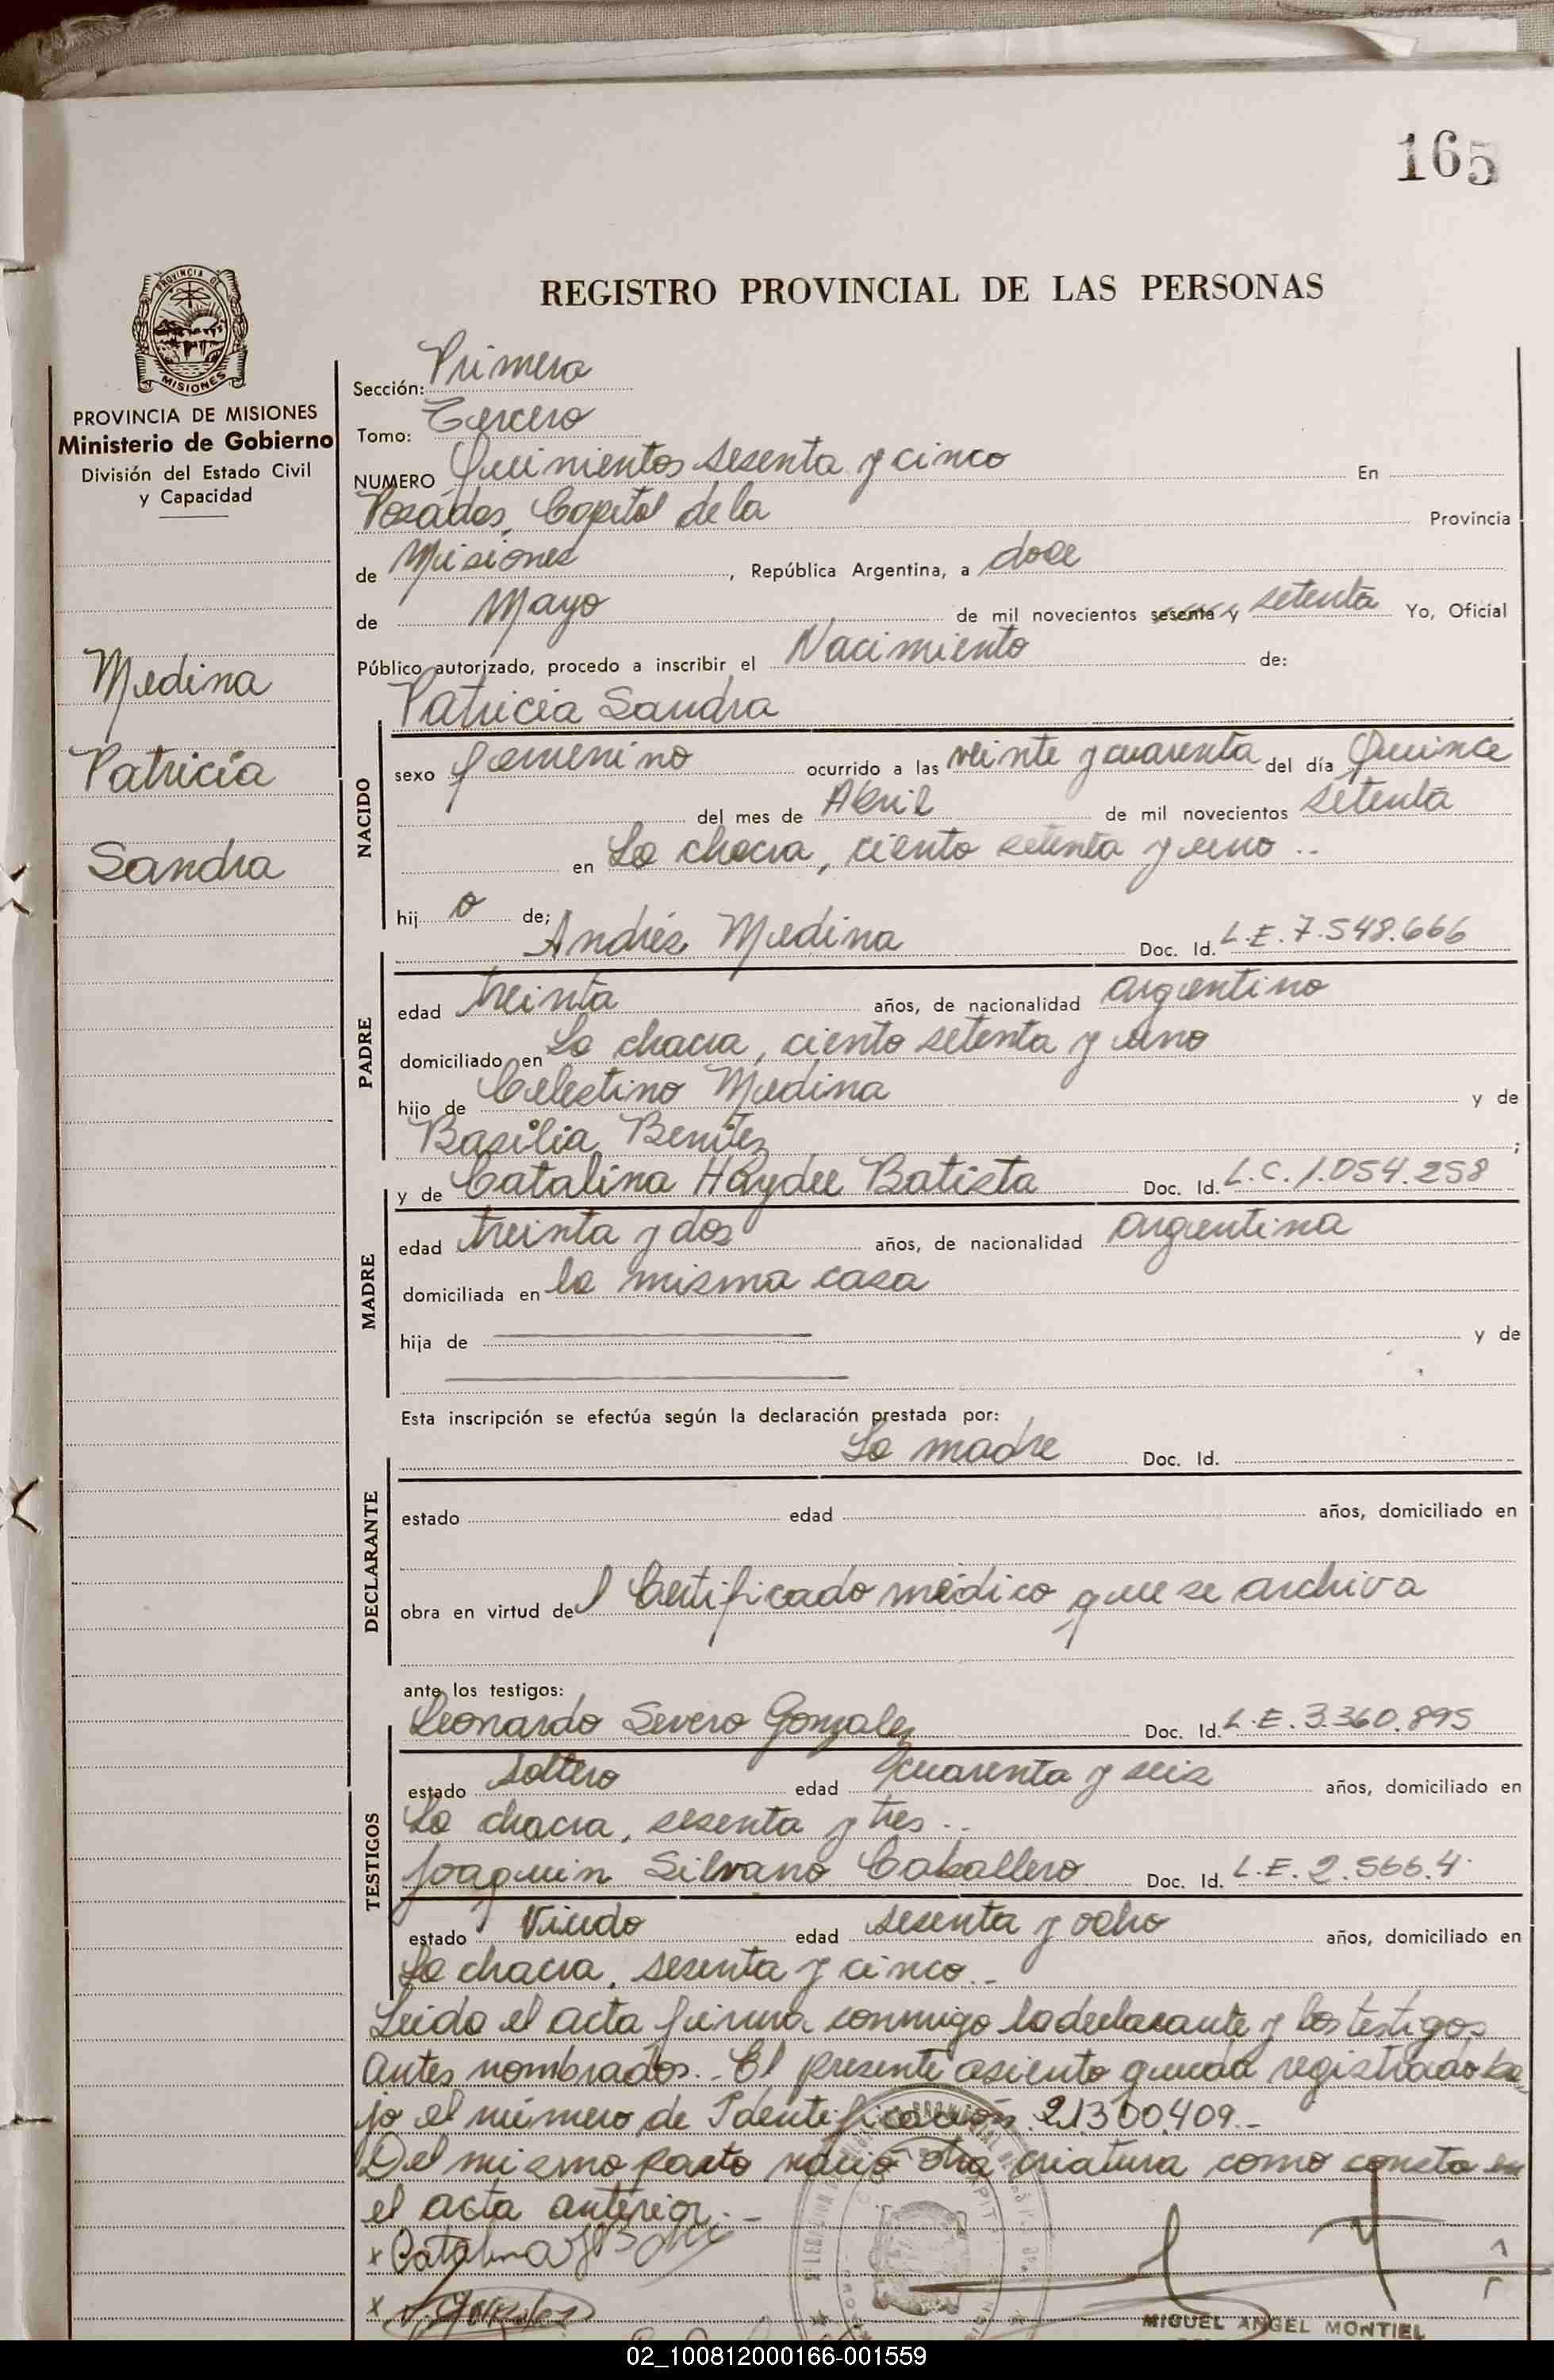 165
PROVINCIA DE
MISIONES
PROVINCIA DE MISIONES
Ministerio de Gobierno
División del Estado Civil
y Capacidad
Medina
Patricia
Sandra
REGISTRO PROVINCIAL DE LAS PERSONAS
Sección: Primera
Tomo: Tercero
NUMERO Quinientos sesenta y cinco En
Posadas, Capital de la Provincia
de Misiones, República Argentina, a doce
de Mayo de mil novecientos sesenta y setenta Yo, Oficial
Público autorizado, procedo a inscribir el Nacimiento de:
Patricia Sandra
NACIDO
sexo femenino ocurrido a las veinte y cuarenta del día Quince
del mes de Abril de mil novecientos setenta
en La chacra, ciento setenta y uno..
hij o de;
Andrés Medina Doc. Id. L.E. 7.548.666
PADRE
edad treinta años, de nacionalidad argentino
domiciliado en La chacra, ciento setenta y uno
hijo de Celestino Medina y de
Basilia Benítez ;
y de Catalina Haydee Batista Doc. Id. L.C. 1.054.258
MADRE
edad treinta y dos años, de nacionalidad argentina
domiciliada en la misma casa
hija de y de
Esta inscripción se efectúa según la declaración prestada por:
La madre Doc. Id.
DECLARANTE
estado edad años, domiciliado en
obra en virtud del Certificado médico que se archiva
ante los testigos:
Leonardo Severo Gonzalez Doc. Id. L.E. 3.360.895
TESTIGOS
estado soltero edad cuarenta y seis años, domiciliado en
La chacra, sesenta y tres..
Joaquin Silvano Caballero Doc. Id. L.E. 2.566.4
estado Viudo edad sesenta y ocho años, domiciliado en
La chacra, sesenta y cinco..
Leida el acta firma conmigo la declarante y los testigos
antes nombrados.- El presente asiento queda registrado ba-
jo el número de Identificación 21300.409.-
Del mismo parto nació otra criatura como consta en
el acta anterior.-
x Catalina H B
x
MIGUEL ANGEL MONTIEL
02_100812000166-001559